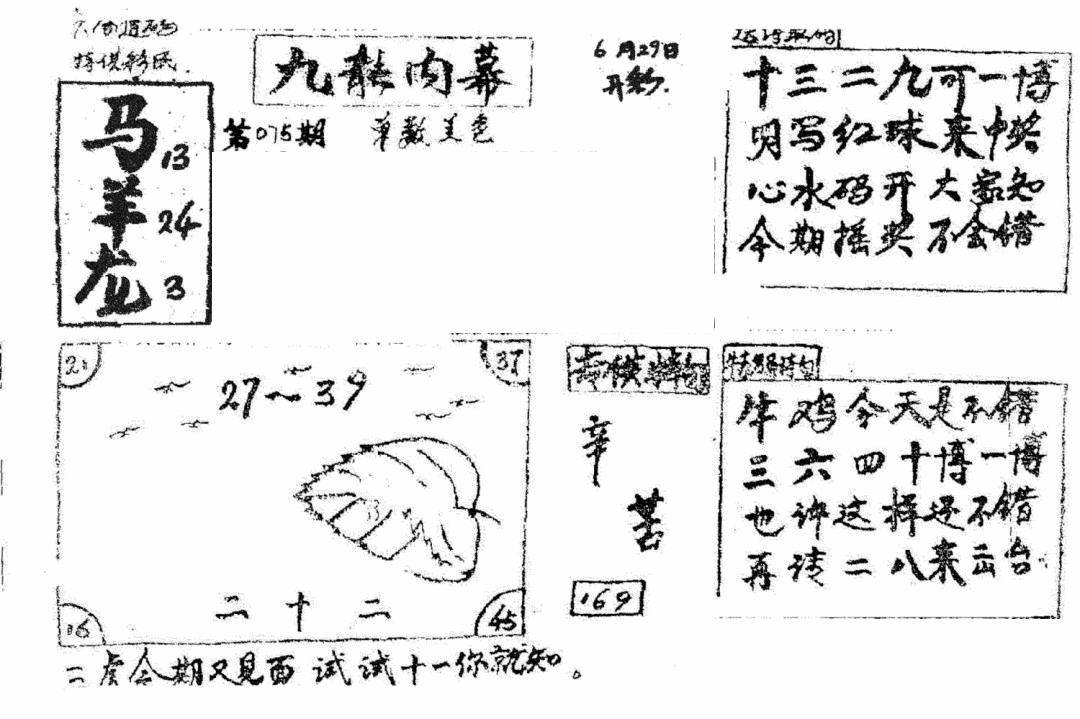 九龙内幕
6月29日
开彩.
第075期 单数美色
马 13
羊 24
龙 3
十三二九可一博
明写红球来中奖
心水码开大家知
今期摇奖不会错
21
37
27～39
二十二
16
45
二虎今期又见面 试试十一你就知。
辛
苦
169
牛鸡今天是不错
三六四十博一博
也许这样还不错
再请二八来出台